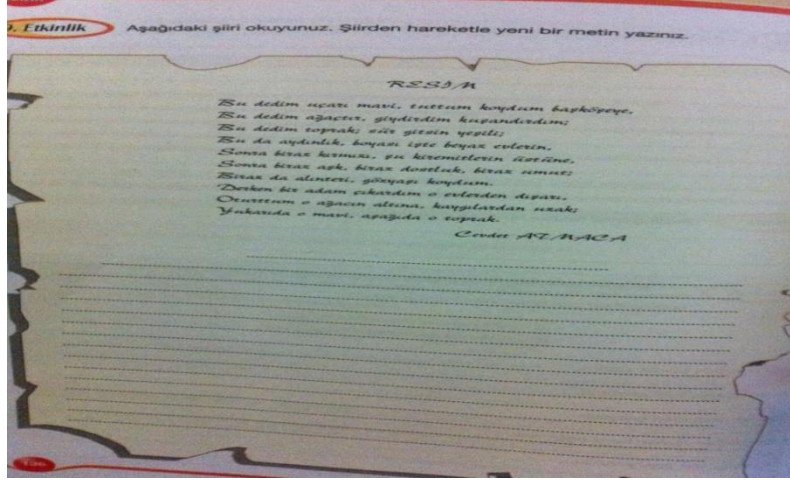 9. Etkinlik
Aşağıdaki şiiri okuyunuz. Şiirden hareketle yeni bir metin yazınız.
RESİM
Bu dedim uçarı mavi, tuttum koydum başköşeye,
Bu dedim ağaçtır, giydirdim kuşandırdım;
Bu dedim toprak; sür gitsin yeşili;
Bu da aydınlık, boyası işte beyaz evlerin,
Sonra biraz kırmızı, şu kiremitlerin üstüne,
Sonra biraz aşk, biraz dostluk, biraz umut;
Biraz da alınteri, gözyaşı koydum.
Derken bir adam çıkardım o evlerden dışarı,
Oturttum o ağacın altına, kaygılardan uzak;
Yukarıda o mavi, aşağıda o toprak.
Cevdet ATMACA